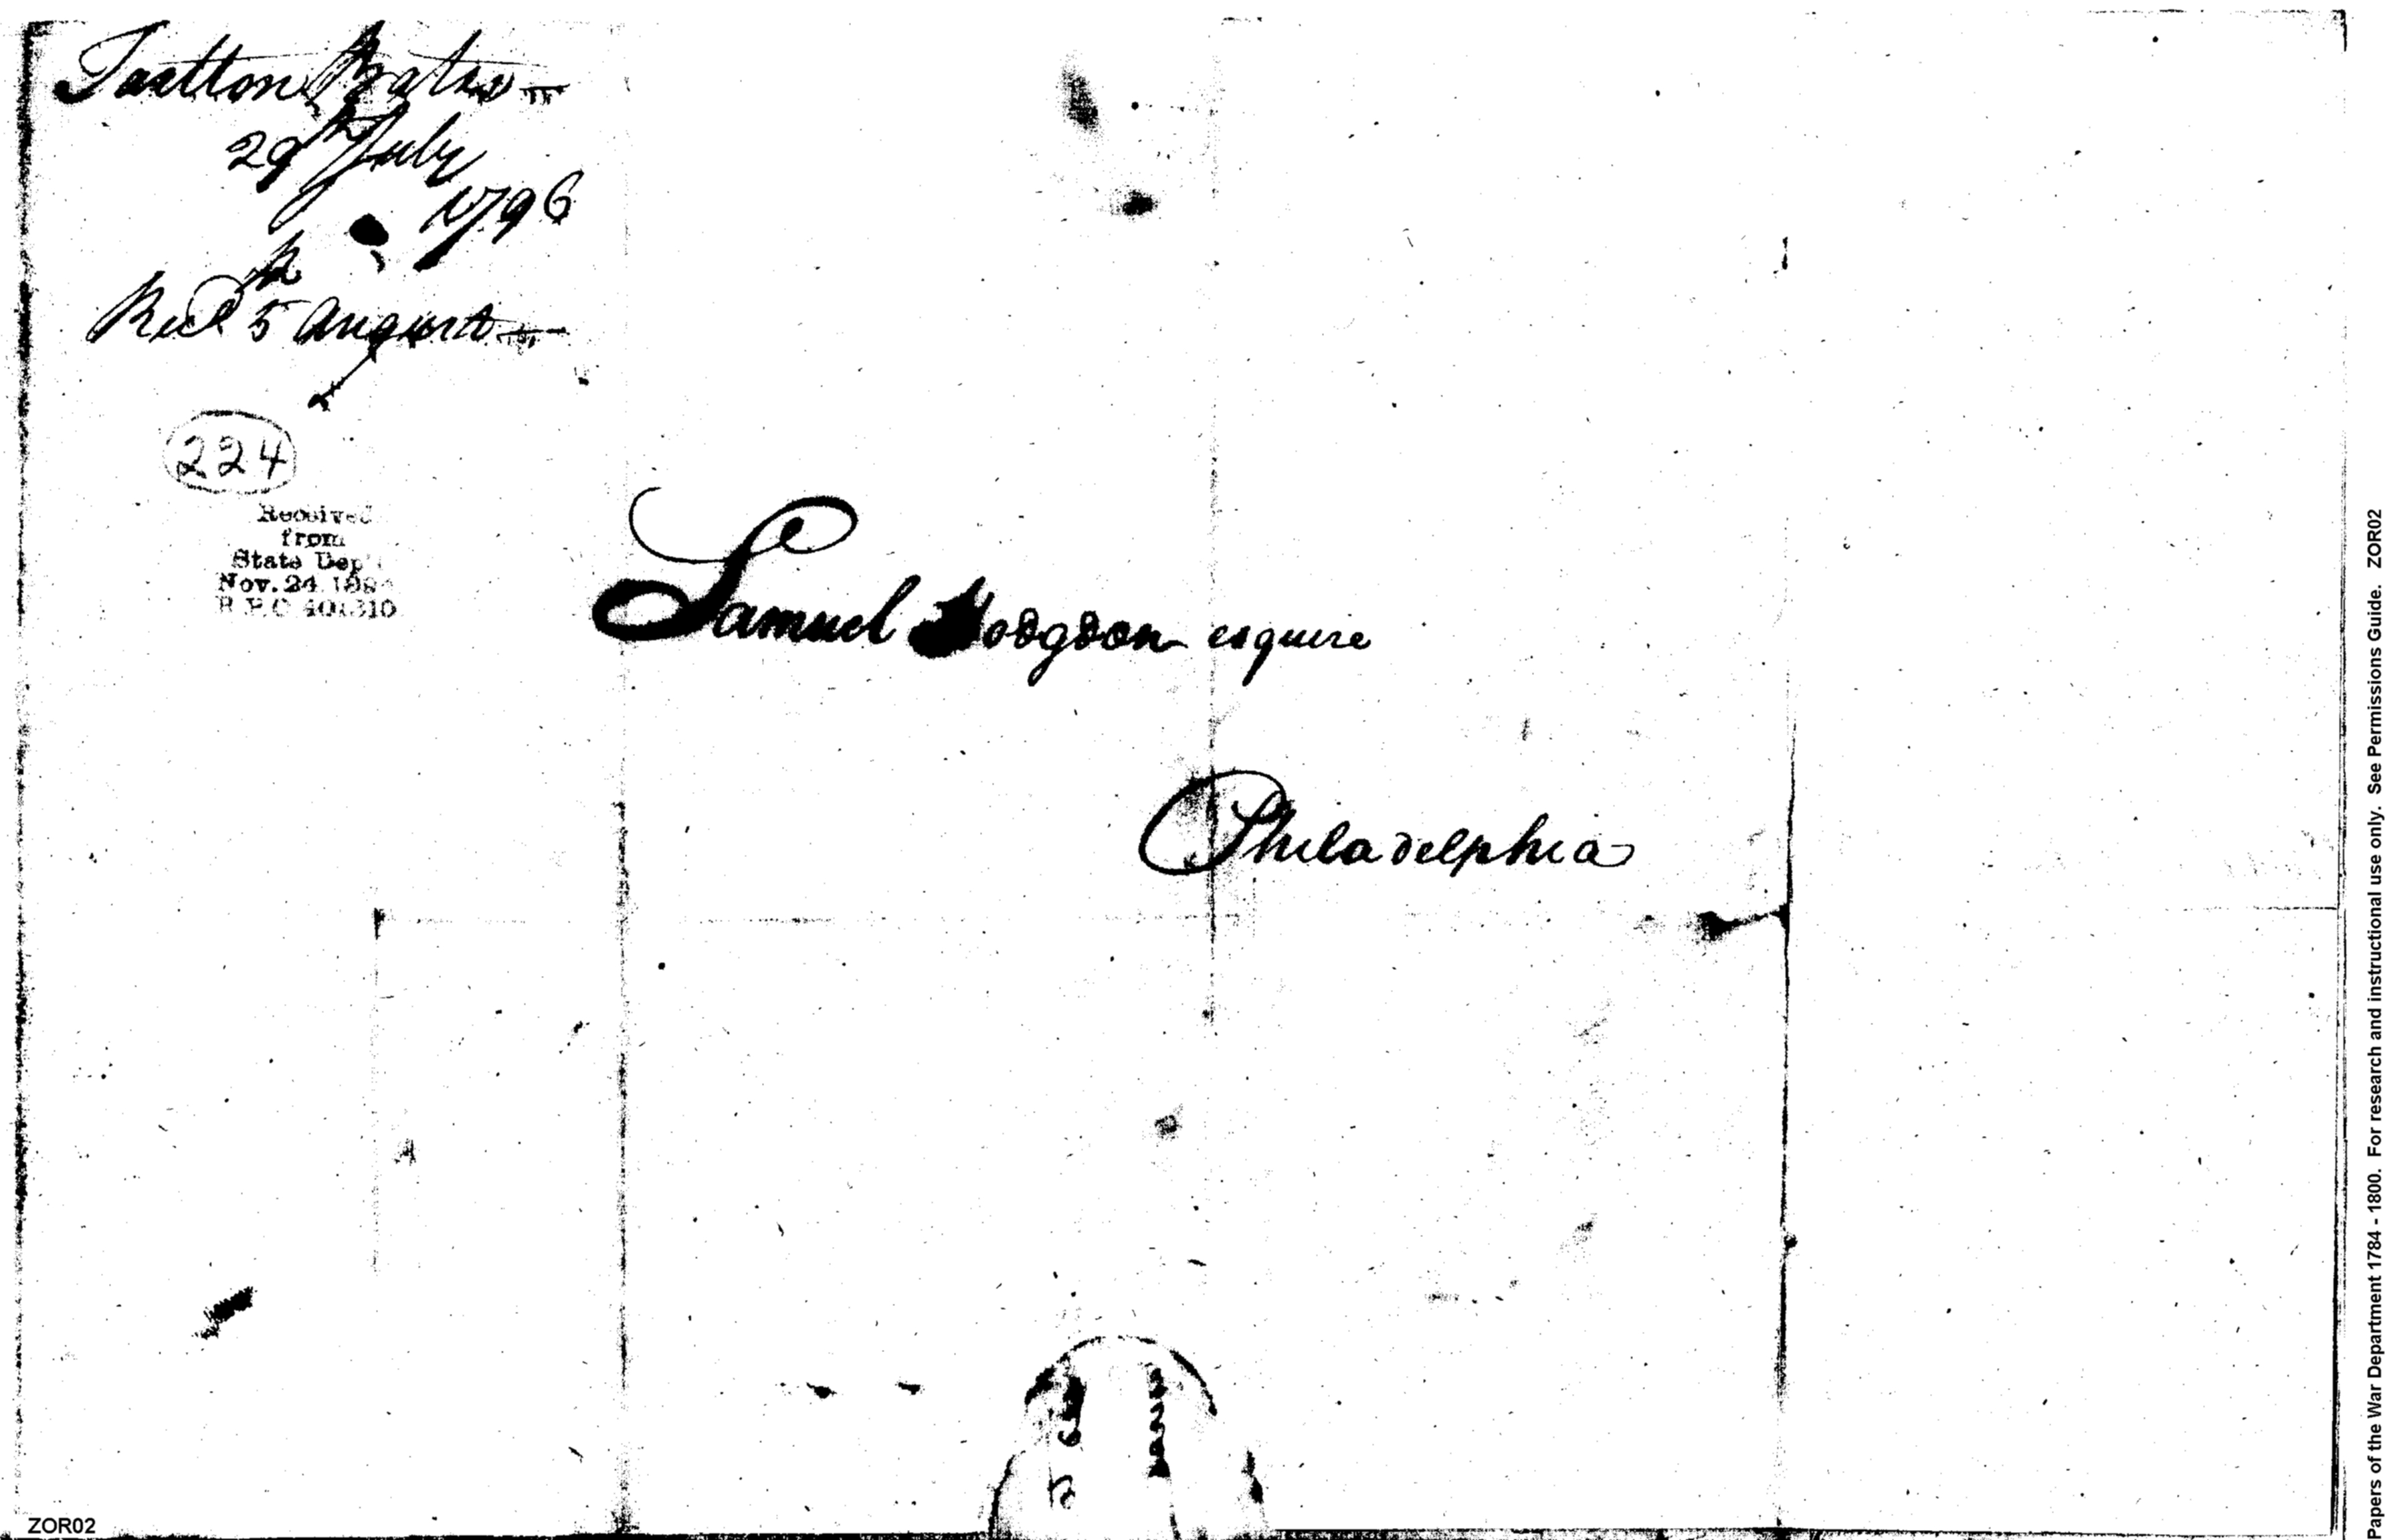 Tarlton Bates
29th July
1796
Recd 5th August
224
Received
from
State Dep't
Nov. 24, 189
R.P.O 401310
Samuel Hodgdon esquire
Philadelphia
ZOR02
Papers of the War Department 1784 - 1800. For research and instructional use only. See Permissions Guide. ZOR02